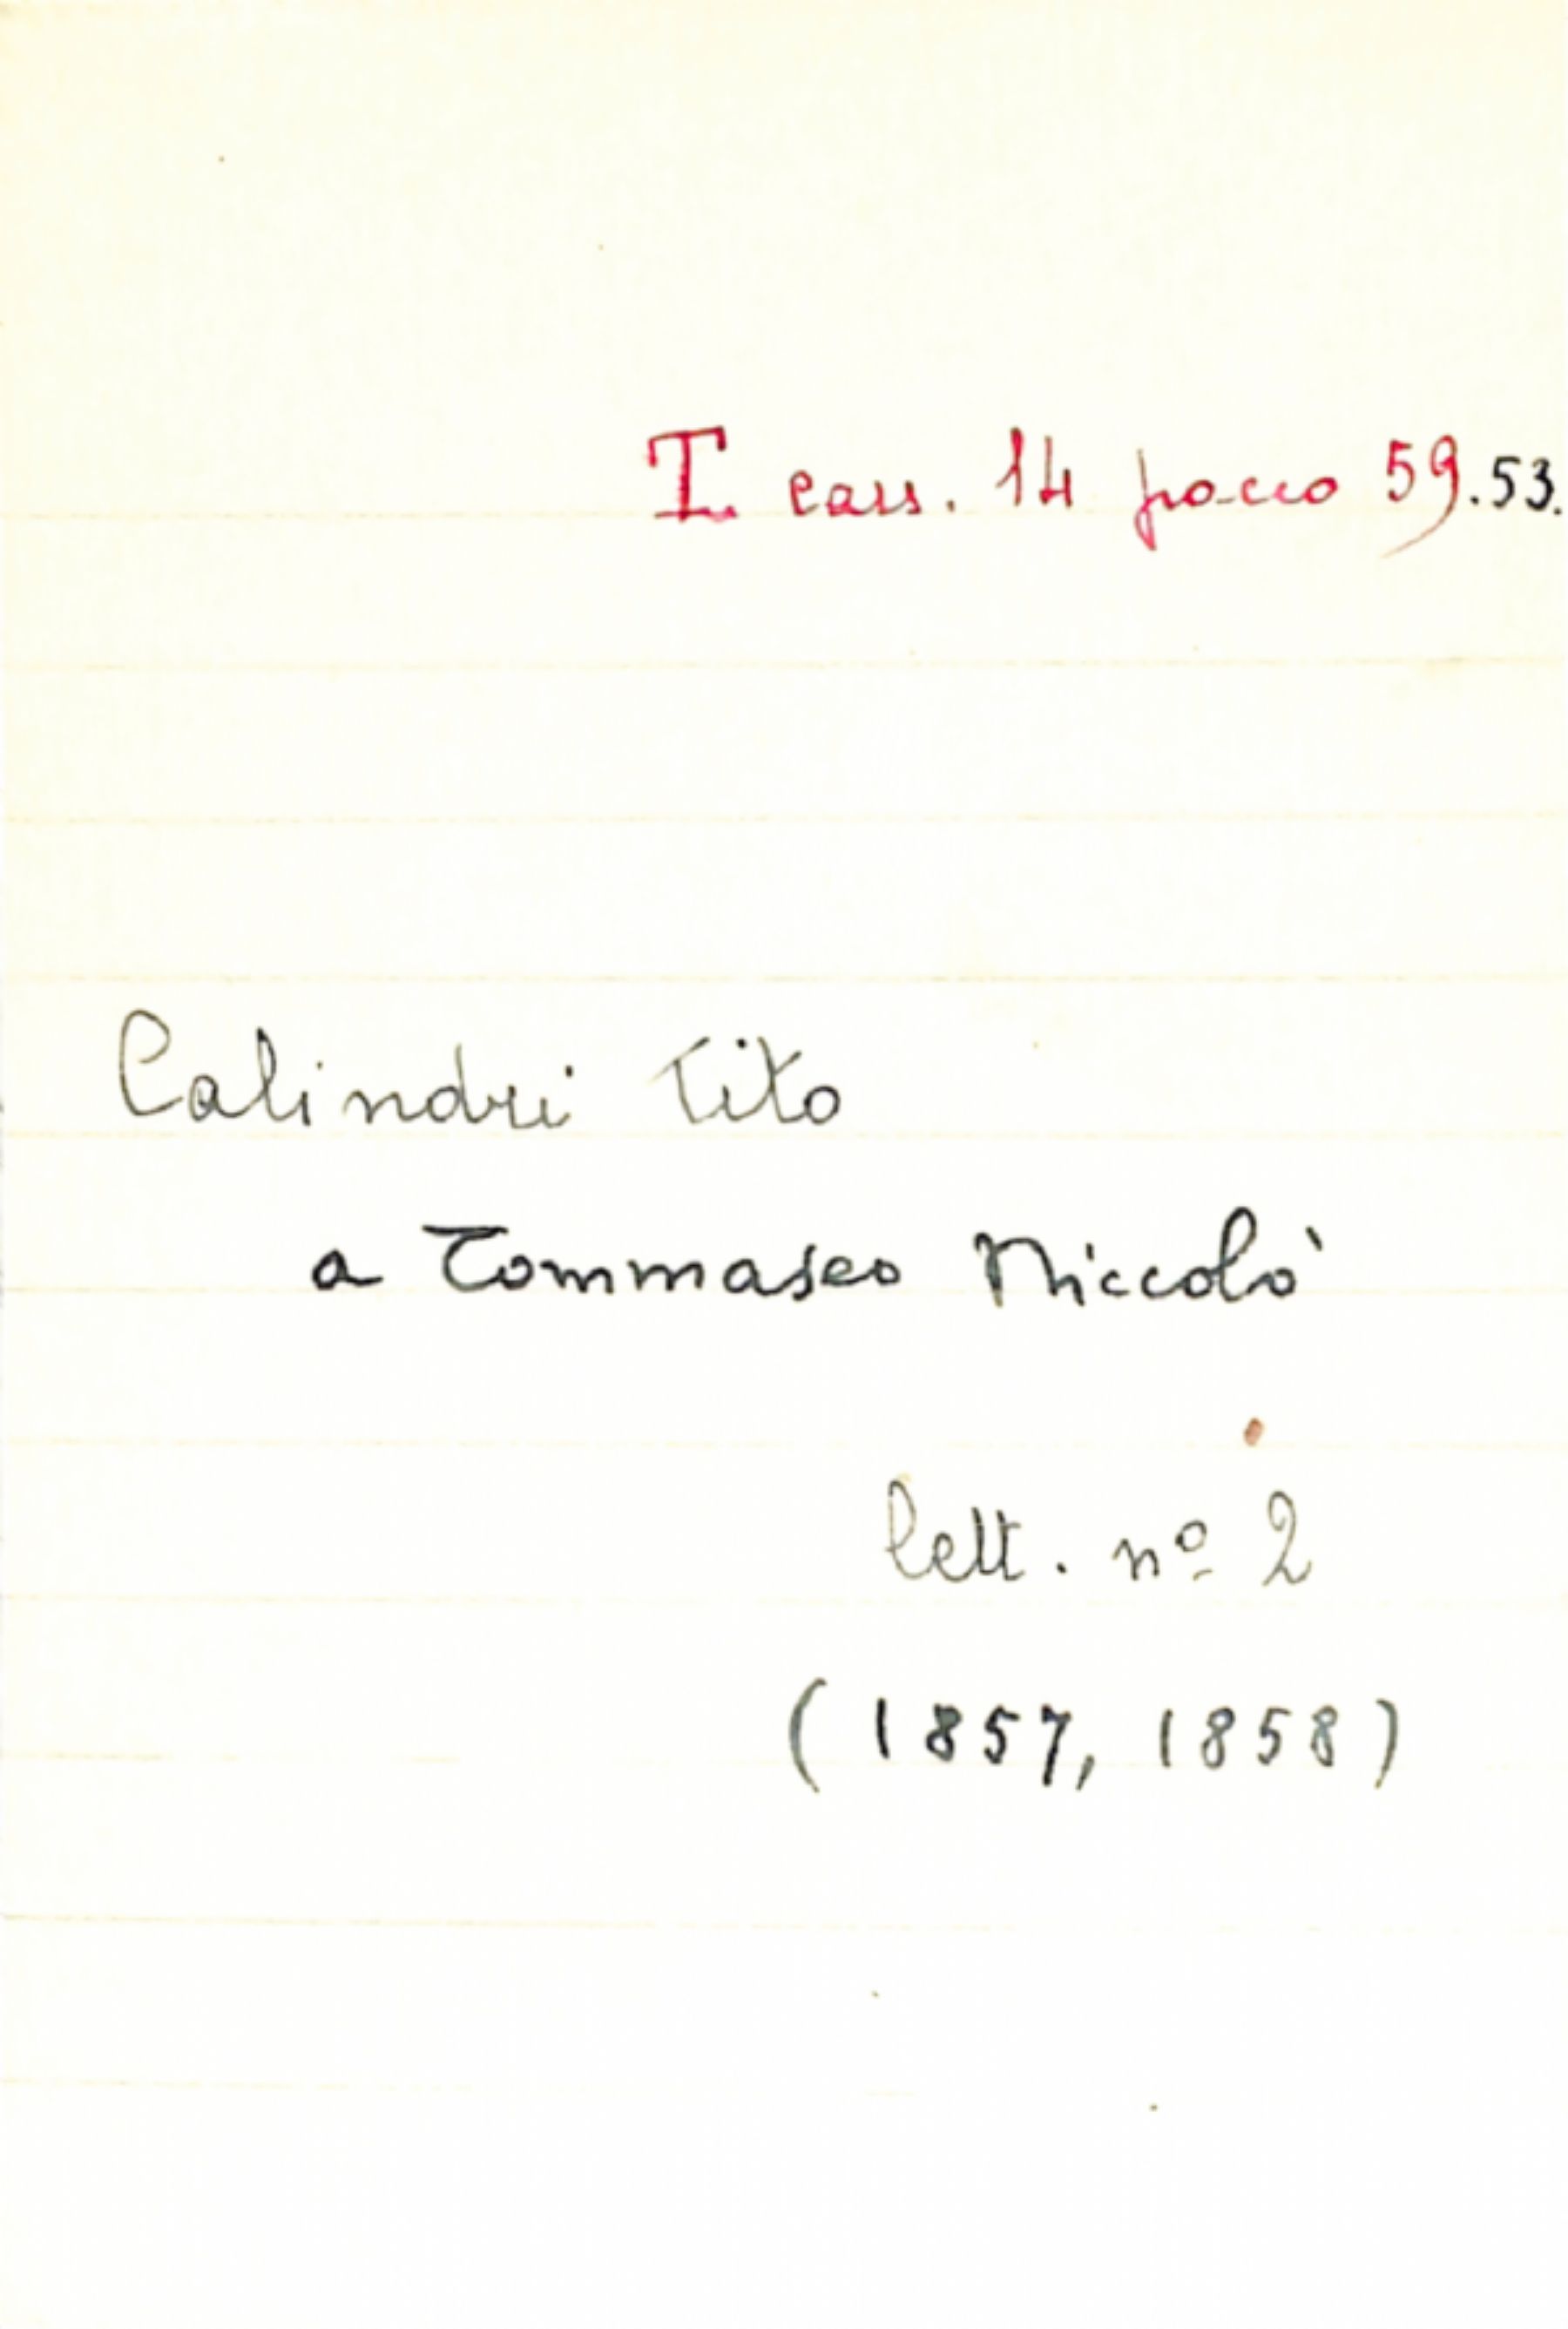 T cass. 14 pacco 59.53.
Calindri Tito
a Tommaseo Niccolò
lett. nº 2
(1857, 1858)